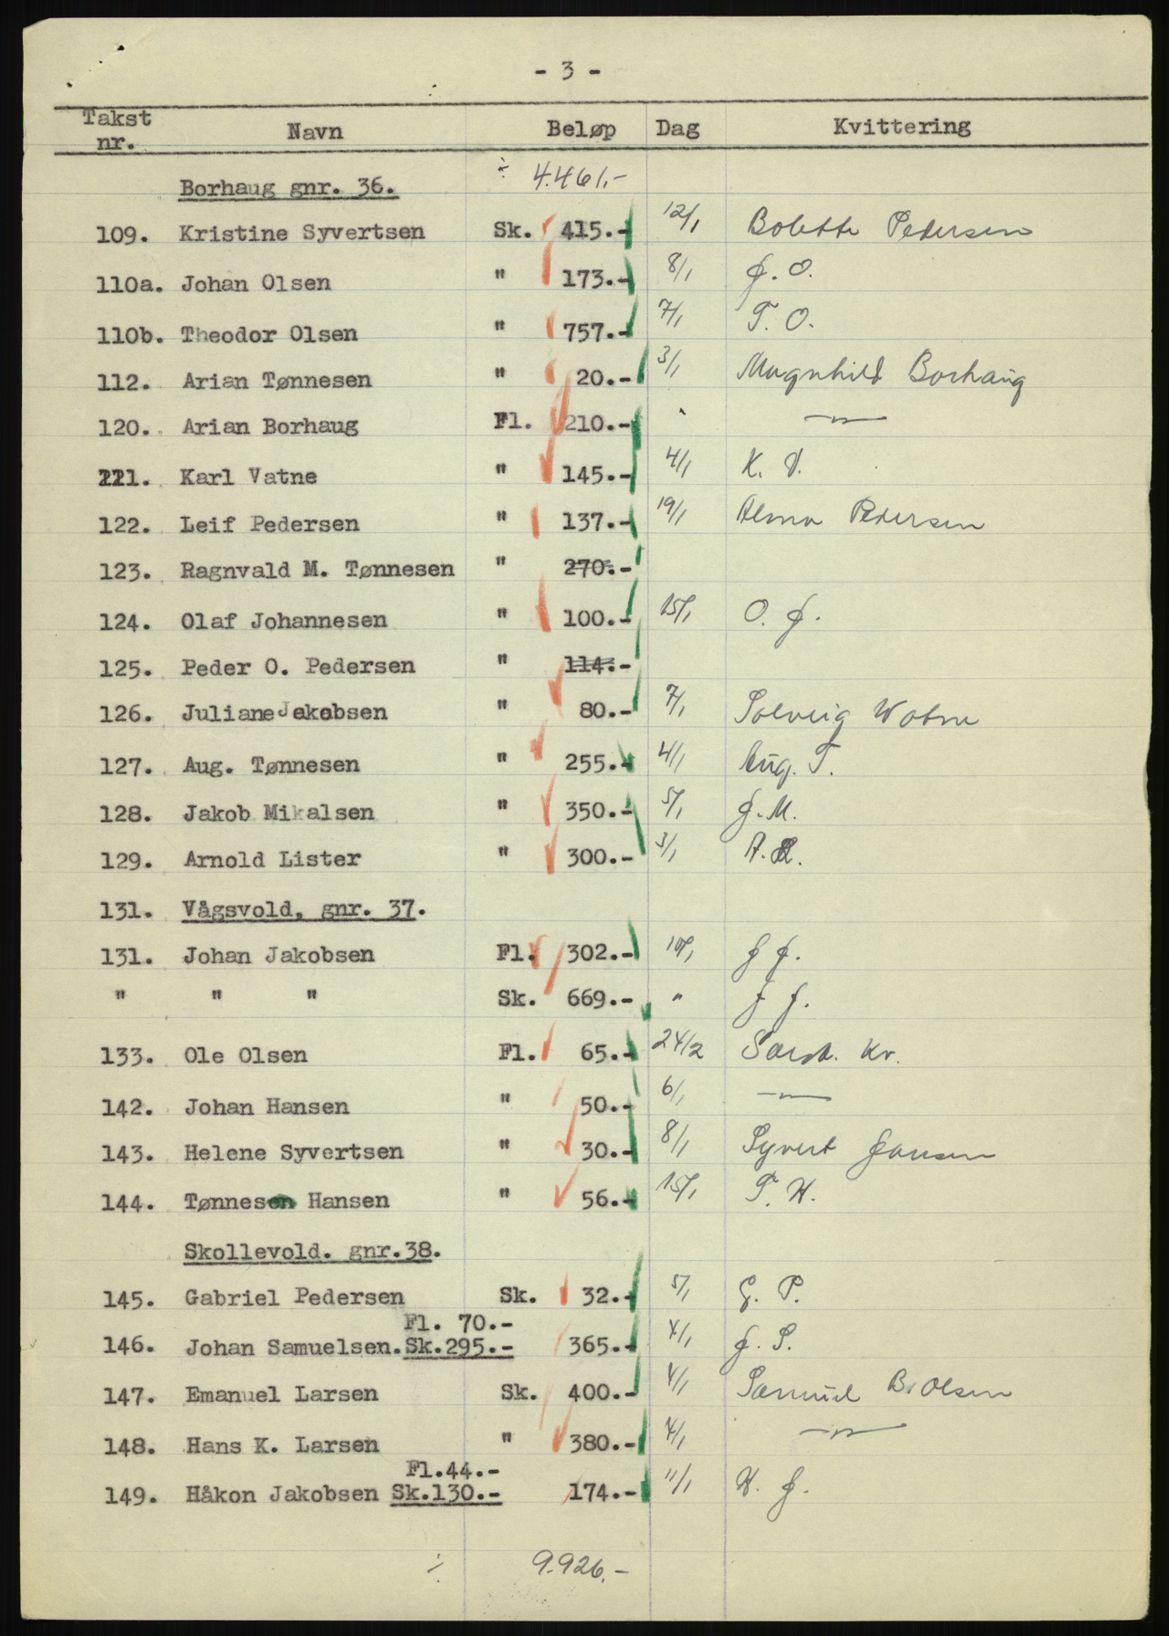 - 3 -
Takst nr. Navn Beløp Dag Kvittering
Borhaug gnr. 36. ÷ 4.461,-
109. Kristine Syvertsen Sk. 415.- 12/1 Bolette Pedersen
110a. Johan Olsen " 173.- 8/1 J. O.
110b. Theodor Olsen " 757.- 7/1 T. O.
112. Arian Tønnesen " 20.- 3/1 Magnhild Borhaug
120. Arian Borhaug Fl. 210.- " —"—
121. Karl Vatne " 145.- 4/1 K. V.
122. Leif Pedersen " 137.- 19/1 Alma Pedersen
123. Ragnvald M. Tønnesen " 270.-
124. Olaf Johannesen " 100.- 15/1 O. J.
125. Peder O. Pedersen " 114.-
126. Juliane Jakobsen " 80.- 7/1 Solveig
127. Aug. Tønnesen " 255.- 4/1 Aug. T.
128. Jakob Mikalsen " 350.- 5/1 J. M.
129. Arnold Lister " 300.- 3/1 A. L.
131. Vågsvold, gnr. 37.
131. Johan Jakobsen Fl. 302.- 10/1 J J.
" " " Sk. 669.- " J J.
133. Ole Olsen Fl. 65.- 24/2 Kr.
142. Johan Hansen " 50.- 6/1 —"—
143. Helene Syvertsen " 30.- 8/1 Syvert Jansen
144. Tønnesen Hansen " 56.- 15/1 T. H.
Skollevold. gnr.38.
145. Gabriel Pedersen Sk. 32.- 5/1 G. P.
Fl. 70.-
146. Johan Samuelsen. Sk.295.- 365.- 4/1 J. S.
147. Emanuel Larsen Sk. 400.- 4/1 Samuel B. Olsen
148. Hans K. Larsen " 380.- 4/1 —"—
Fl.44.-
149. Håkon Jakobsen Sk.130.- 174.- 11/1 H. J.
÷ 9.926,-